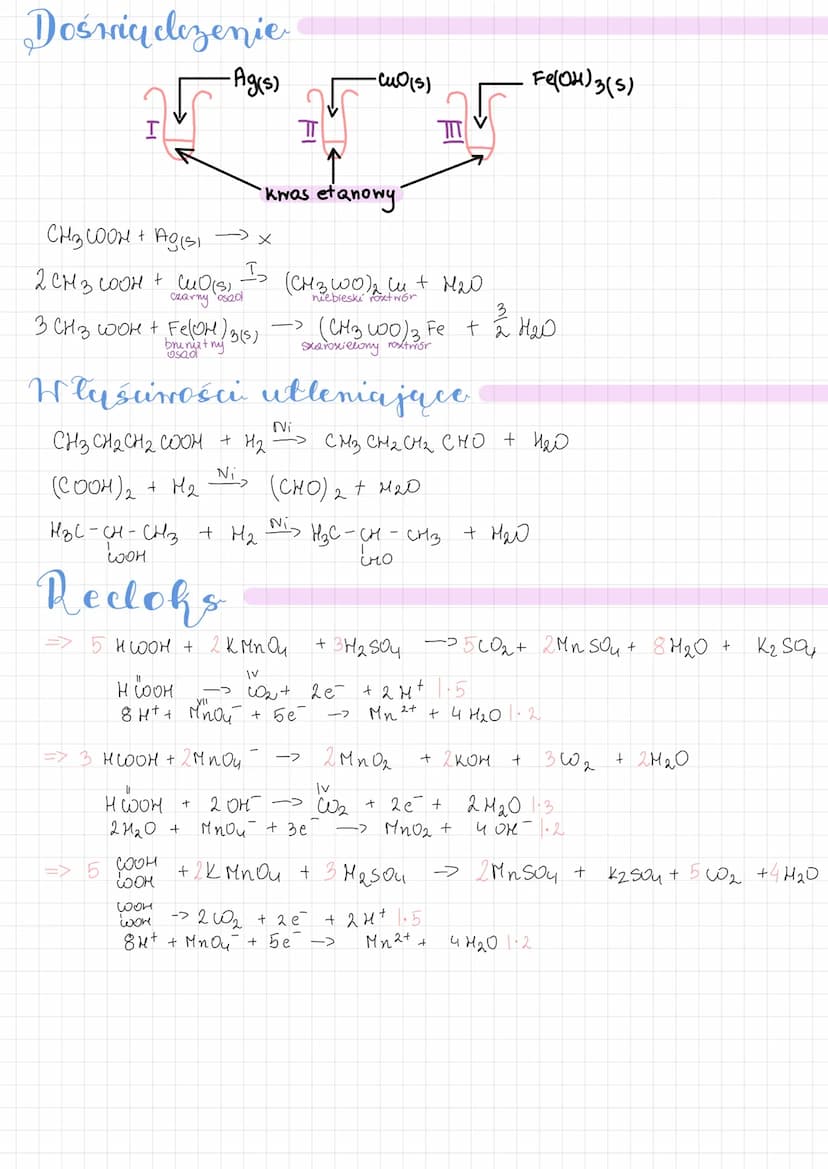 Doświadczenie
Ag(s) CuO(s) Fe(OH)3(s)
I II III
kwas etanowy
CH3COOH + Ag(s) → x
2 CH3COOH + CuO(s) I→ (CH3COO)2 Cu + H2O
czarny osad niebieski roztwór
3 CH3COOH + Fe(OH)3(s) → (CH3COO)3 Fe + 3/2 H2O
brunatny osad szarozielony roztwór
Właściwości utleniające
CH3CH2CH2COOH + H2 Ni→ CH3CH2CH2CHO + H2O
(COOH)2 + H2 Ni→ (CHO)2 + H2O
H3C-CH-CH3 + H2 Ni→ H3C-CH-CH3 + H2O
COOH CHO
Redoks
=> 5 HCOOH + 2KMnO4 + 3H2SO4 → 5CO2 + 2MnSO4 + 8H2O + K2SO4
II IV
HCOOH → CO2 + 2e- + 2H+ |·5
VII
8H+ + MnO4- + 5e- → Mn2+ + 4H2O |·2
=> 3 HCOOH + 2MnO4- → 2MnO2 + 2KOH + 3CO2 + 2H2O
II IV
HCOOH + 2OH- → CO2 + 2e- + 2H2O |·3
2H2O + MnO4- + 3e- → MnO2 + 4OH- |·2
=> 5 COOH
COOH + 2KMnO4 + 3H2SO4 → 2MnSO4 + K2SO4 + 5CO2 + 4H2O
COOH
COOH → 2CO2 + 2e- + 2H+ |·5
8H+ + MnO4- + 5e- → Mn2+ + 4H2O |·2